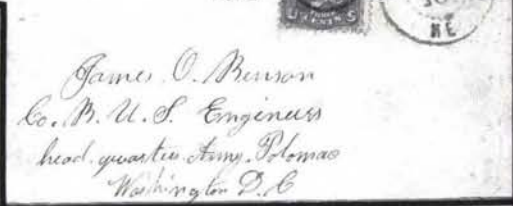 U THREE CENTS S
ME
James O. Benson
Co. B. U. S. Engineers
head quarters Army Potomac
Washington D. C